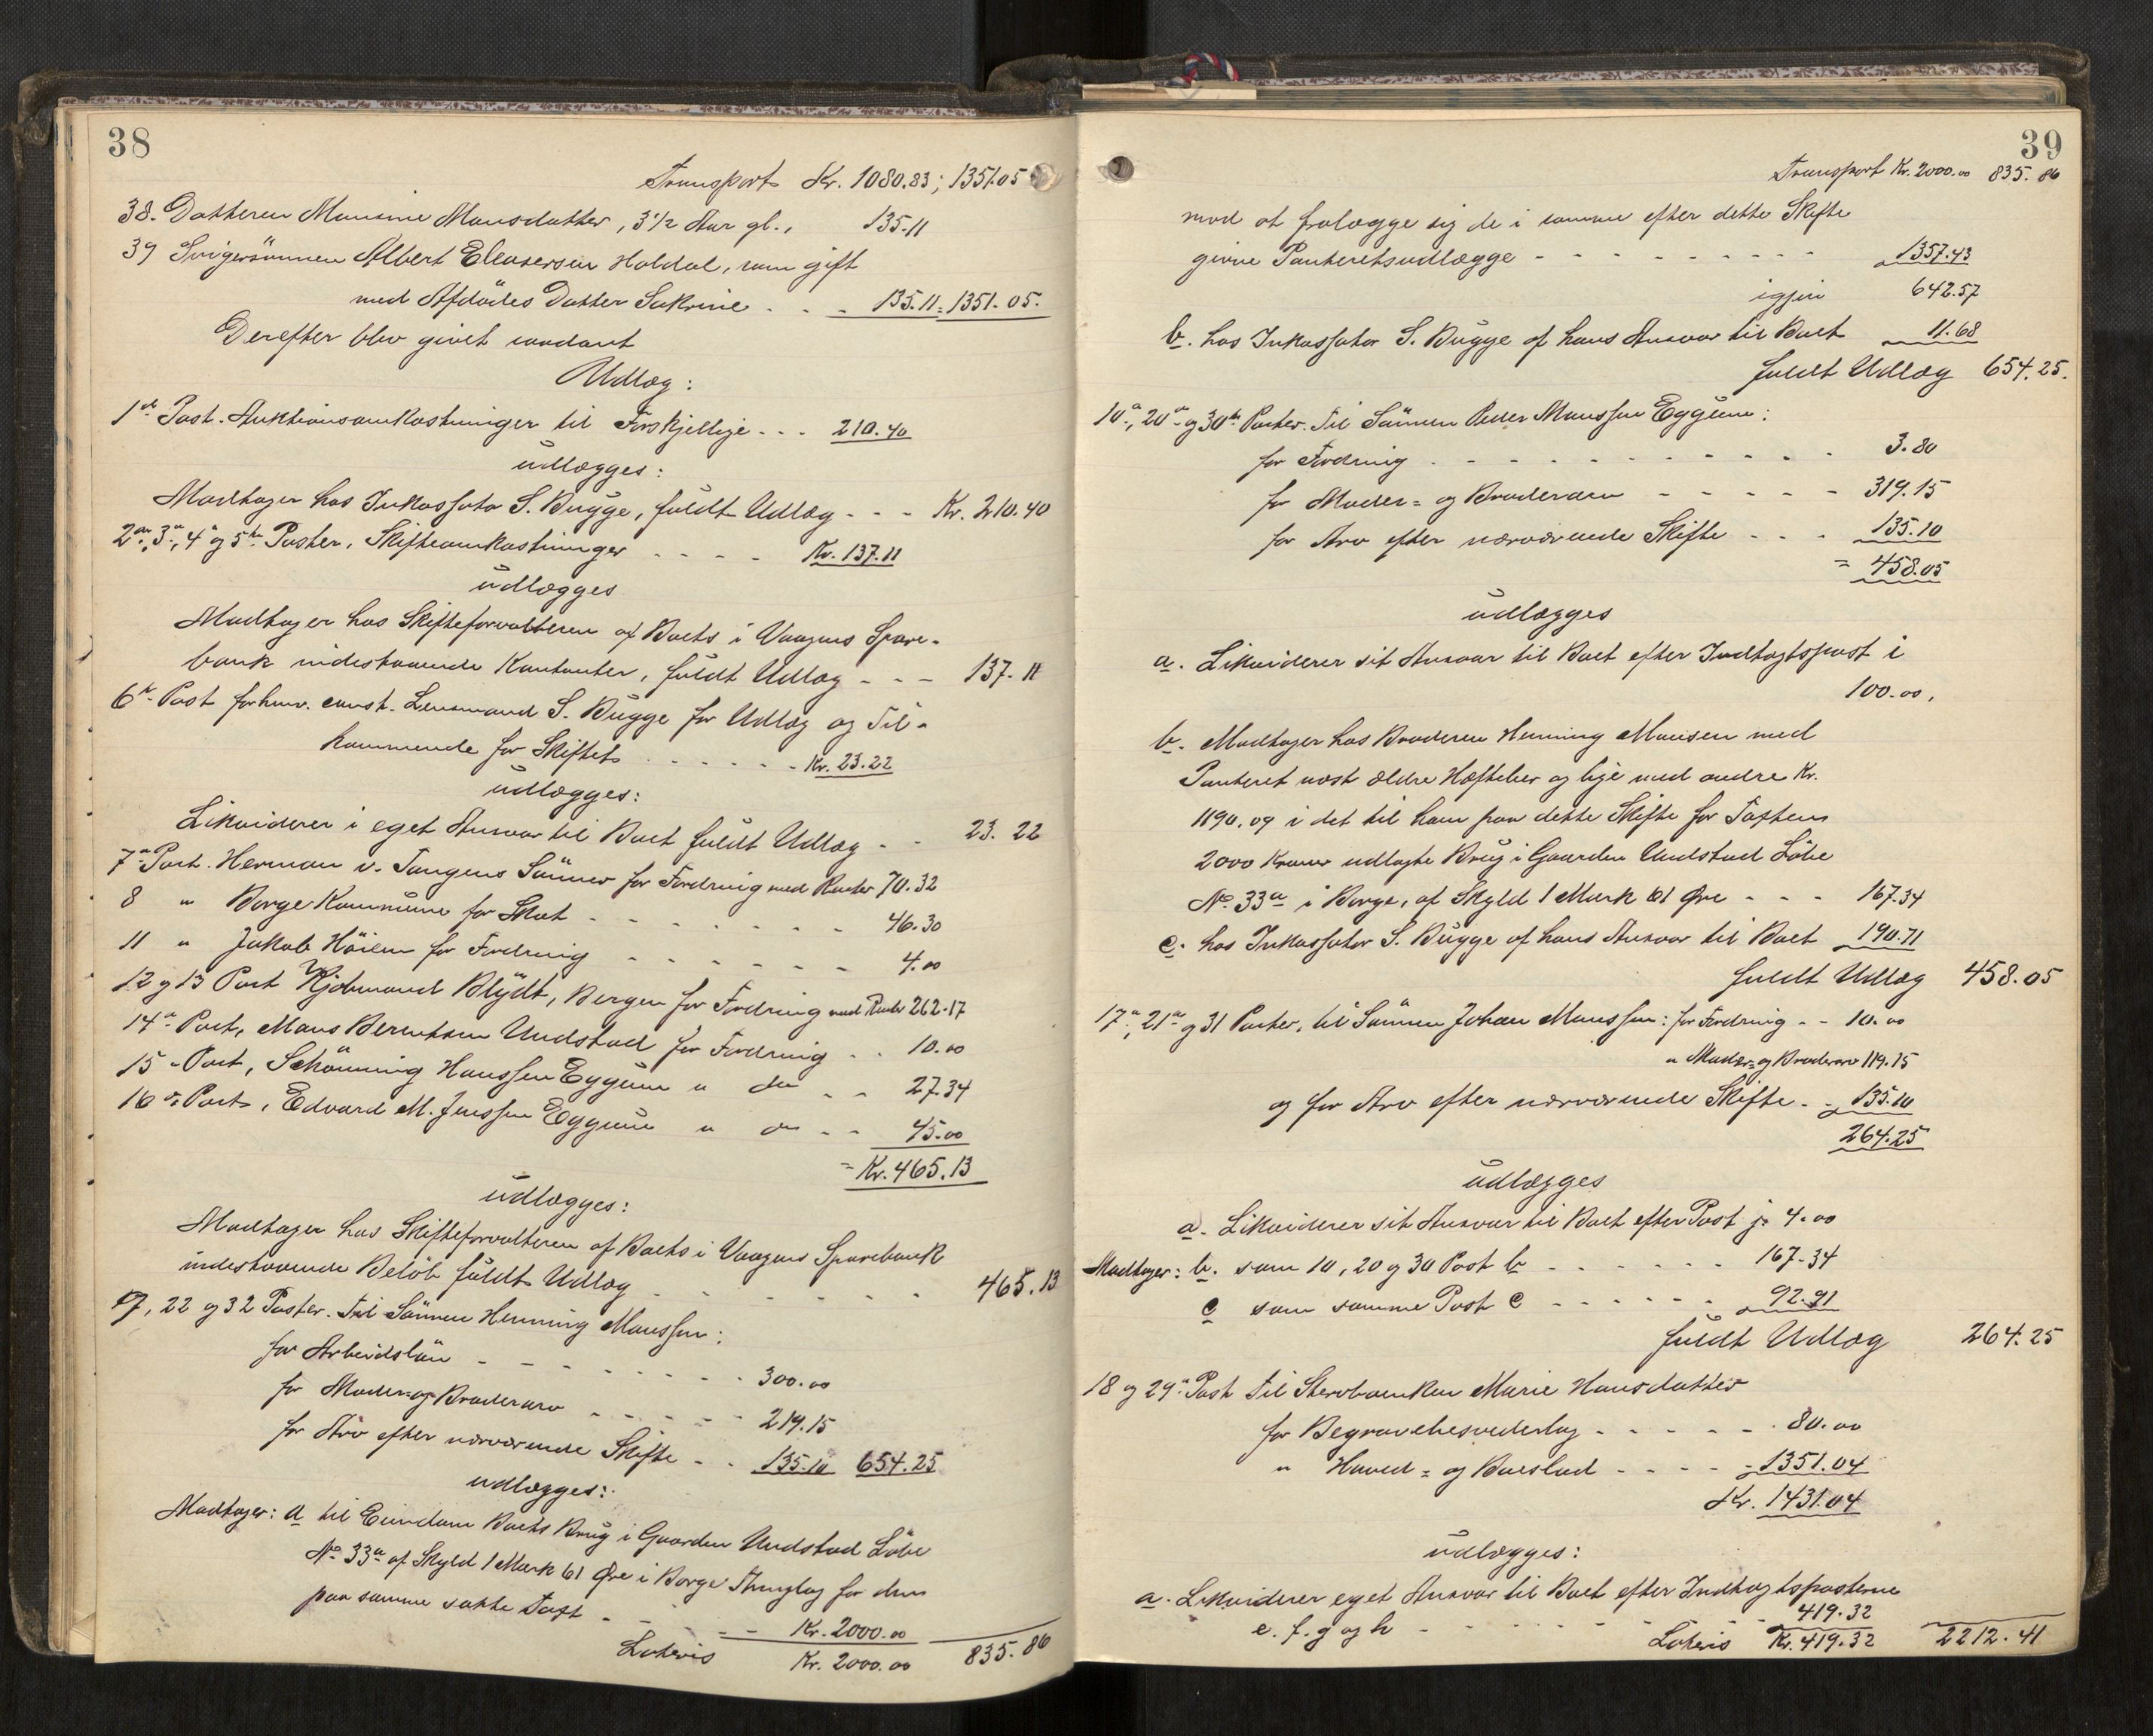 38
Transport Kr. 1080.83; 1351.05
38. Datteren Mansine Mansdatter, 3 1/2 Aar gl., 135.11
39 Svigersönnen Albert Eleasersen Holdal, som gift
med Afdödes Datter Sakrine - - - 135.11 = 1351.05.
Derefter blev givet saadant
Udlæg:
1ste Post. Auktionsomkostninger til Forskjellige - - - 210.40
udlægges:
Modtager hos Inkassator S. Bugge, fuldt Udlæg - - - Kr. 210.40
2den, 3die, 4de og 5te Poster, Skifteomkostninger - - - - Kr. 137.11
udlægges
Modtager hos Skifteforvalteren af Boets i Vaagens Spare-
bank indestaaende Kontanter, fuldt Udlæg - - - 137.11
6te Post forhenv. const. Lensmand S. Bugge for Udlæg og Til-
kommende for Skiftet - - - - - - Kr. 23.22
udlægges:
Likviderer i eget Ansvar til Boet fuldt Udlæg - - 23.22
7de Post. Herman v. Tangens Sönner for Fordring med Renter 70.32
8 " Borge Kommune for Skat - - - - - - - 46.30
11 " Jakob Höien for Fordring - - - - - - 4.00
12 og 13 Post Kjöbmand Blÿdt, Bergen for Fordring med Renter 262.17
14de Post, Mons Berentsen Undstad for Fordring - - 10.00
15de Post, Schönning Hanssen Eggum " do - - 27.34
16de Post, Edvard M. Jenssen Eggum " do - - 45.00
= Kr. 465.13
udlægges:
Modtager hos Skifteforvalteren af Boets i Vaagens Sparebank
indestaaende Belöb fuldt Udlæg - - - - - - - 465.13
9, 22 og 32 Poster. Til Sönnen Henning Monssen:
for Arbeidslön - - - - - - - 300.00
for Moder- og Broderarv - - - - - 219.15
for Arv efter nærværende Skifte - - 135.10 654.25
udlægges:
Modtager: a til Eiendom Boets Brug i Gaarden Undstad Löbe
No 33a af Skyld 1 Mark 61 Öre i Borge Thinglag for den
paa samme satte Taxt - - - - Kr. 2000.00
Lateris Kr. 2000.00 835.86
39
Transport Kr. 2000.00 835.86
mod at fralægge sig de i samme efter dette Skifte
givne Panteretsudlægge - - - - - - - - - - 1357.43
igjen 642.57
b. hos Inkassator S. Bugge af hans Ansvar til Boet 11.68
fuldt Udlæg 654.25.
10de, 20de og 30te Poster. Til Sönnen Peder Monssen Eggum:
for Fordring - - - - - - - - - - - 3.80
for Moder- og Broderarv - - - - - 319.15
for Arv efter nærværende Skifte - - - 135.10
= 458.05
udlægges
a. Likviderer sit Ansvar til Boet efter Indtægtspost i
100.00.
b. Modtager hos Broderen Henning Monsen med
Panteret næst ældre Hæftelser og lige med andre Kr.
1190.09 i det til ham paa dette Skifte for Taxten
2000 Kroner udlagte Brug i Gaarden Undstad Löbe
No 33a i Borge, af Skyld 1 Mark 61 Öre - - - 167.34
c. hos Inkassator S. Bugge af hans Ansvar til Boet 190.71
fuldt Udlæg 458.05
17de, 21de og 31 Poster, til Sönnen Johan Monssen: for Fordring - - 10.00
" Moder- og Broderarv 119.15
og for Arv efter nærværende Skifte - - 135.10
264.25
udlægges
a. Likviderer sit Ansvar til Boet efter Post j. 4.00
Modtager: b. som 10, 20 og 30 Post b - - - - - - 167.34
c som samme Post c - - - - - - 92.91
fuldt Udlæg 264.25
18 og 29de Post til Stervboenken Marie Hansdatter
for Begravelsesvederlag - - - - - 80.00
" Hoved- og Boeslod - - - - - 1351.04
Kr. 1431.04
udlægges:
a. Likviderer eget Ansvar til Boet efter Indtægtsposterne
e. f. g og h - - - - - - - - 419.32
Lateris Kr. 419.32 2212.41